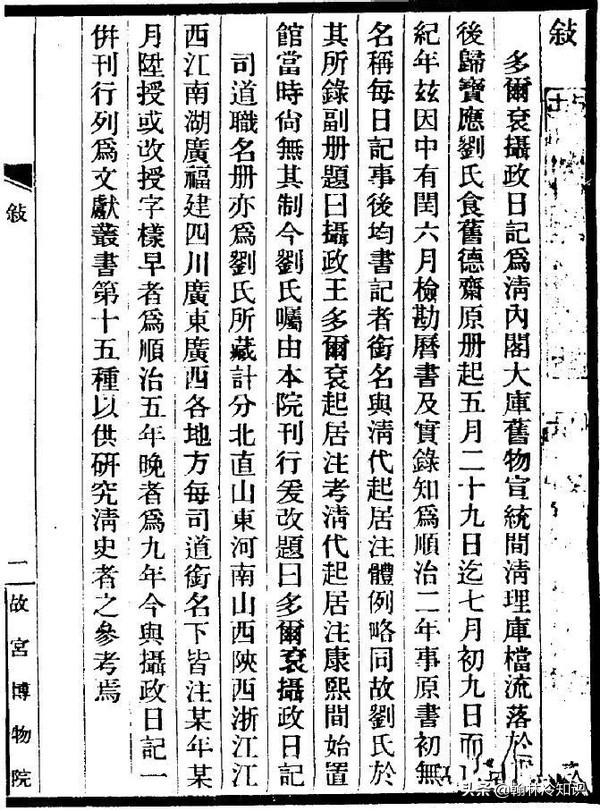 敍
多爾袞攝政日記爲清內閣大庫舊物宣統間清理庫檔流落於
後歸寶應劉氏食舊德齋原册起五月二十九日迄七月初九日而
紀年玆因中有閏六月檢勘曆書及實錄知爲順治二年事原書初無
名稱每日記事後均書記者銜名與清代起居注體例略同故劉氏於
其所錄副册題曰攝政王多爾袞起居注考清代起居注康熙間始置
館當時尙無其制今劉氏囑由本院刊行爰改題曰多爾袞攝政日記
司道職名册亦爲劉氏所藏計分北直山東河南山西陝西浙江江
西江南湖廣福建四川廣東廣西各地方每司道銜名下皆注某年某
月陞授或改授字樣早者爲順治五年晚者爲九年今與攝政日記一
併刊行列爲文獻叢書第十五種以供硏究清史者之參考焉
敍
一
故宮博物院
头条 @翰林冷知识